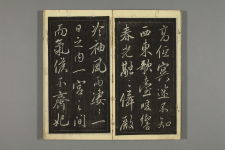 高低冥迷不知
西東歌臺暖響
春光融〻舞殿
冷袖風雨凄〻一
日之内一宫之間
而氣候不齊妃